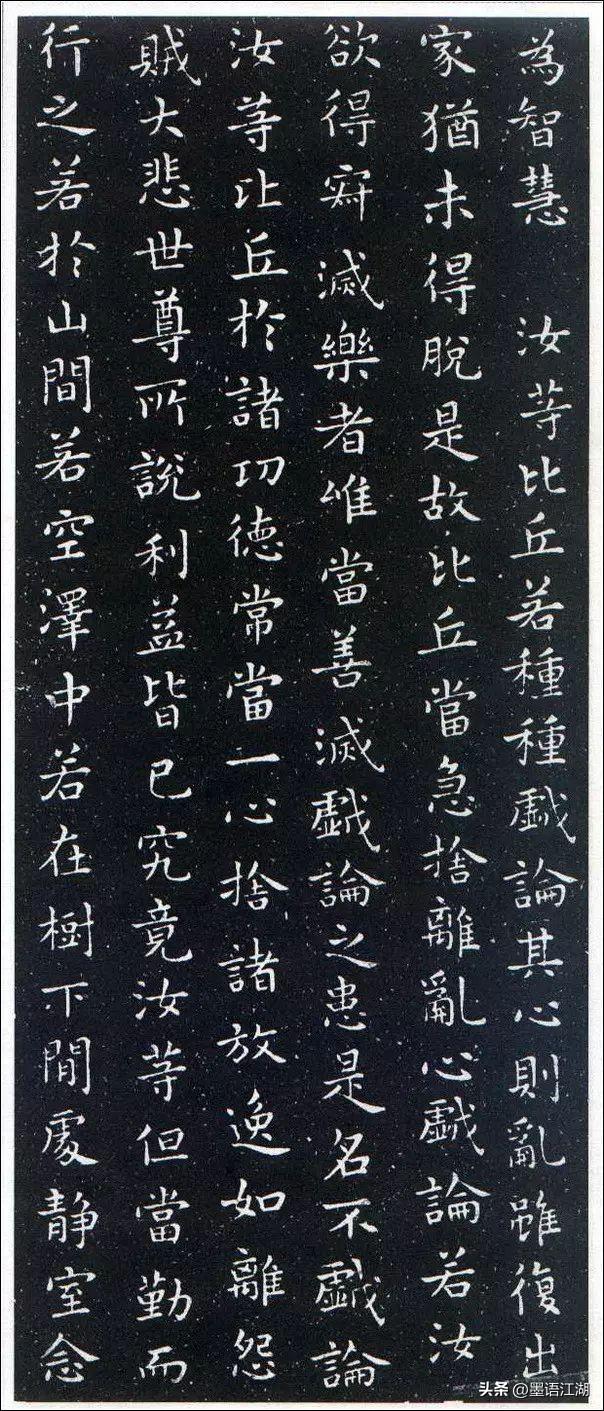 為智慧　汝等比丘若種種戲論其心則亂雖復出
家猶未得脫是故比丘當急捨離亂心戲論若汝
欲得寂滅樂者唯當善滅戲論之患是名不戲論
汝等比丘於諸功德常當一心捨諸放逸如離怨
賊大悲世尊所說利益皆已究竟汝等但當勤而
行之若於山間若空澤中若在樹下閒處靜室念
头条 @墨语江湖